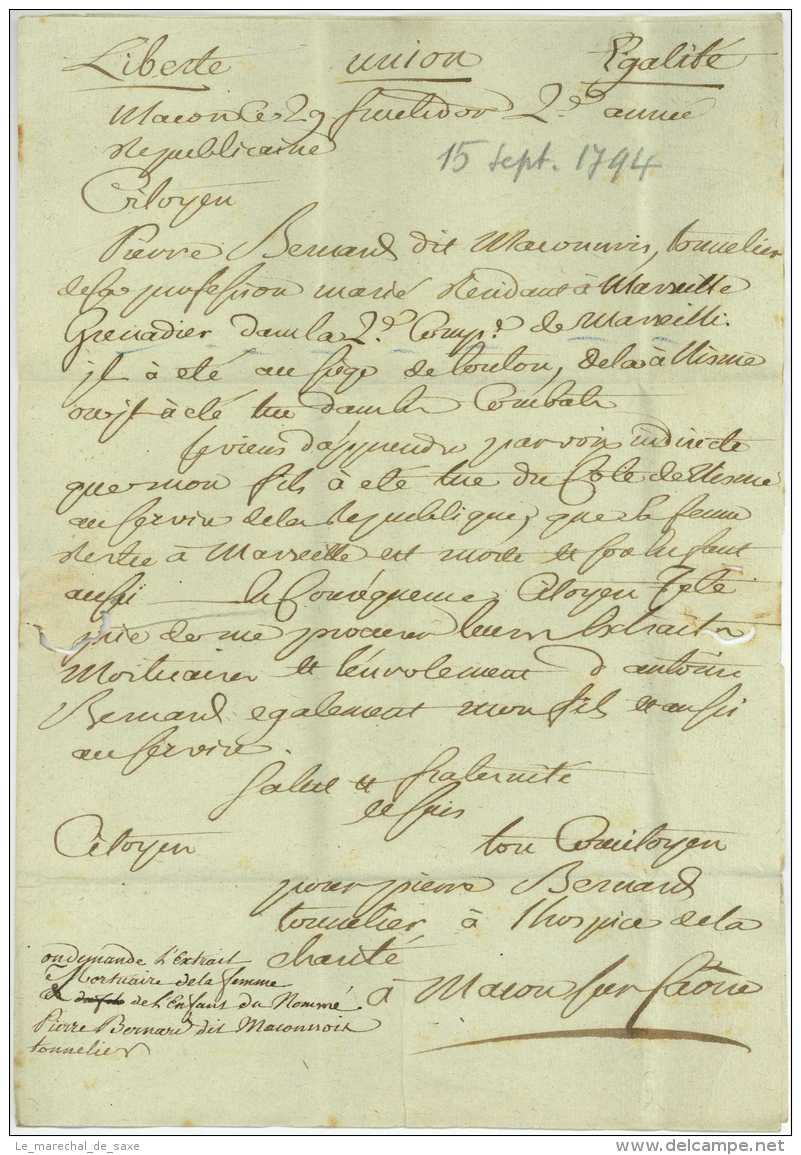 Liberte union Egalité
Macon Ce 29 fructidor 2.e année
Republicaine
15 Sept. 1794
Citoyen
Pierre Bernard dit Maconnois, tonnelier
de sa profession marié Residant à Marseille
Grenadier dans la 2.e Comp.e de Marseille.
jl à eté au siege de toulon, de la à Nisme
ou jl à été tue dans les Combats
je viens d'apprendre par voix indirecte
que mon fils à eté tue du Cote de Nisme
au service de la Republique, que sa femme
Restée à Marseille est morte et son Enfant
aussi En Conséquence, Citoyen Je te
prie de me procurer leurs Extraits
Mortuaires et l'enrolement d'antoine
Bernard egalement mon fils et aussi
au service.
Salut et fraternité
Je suis
Citoyen ton Concitoyen
pour pierre Bernard
tonnelier à l'hospice de la
charité
à Macon sur Saône
on demande l'Extrait
Mortuaire de la femme
& de l'Enfant du Nommé
Pierre Bernard dit Maconnois
tonnelier
Le_marechal_de_saxe
delcampe.net